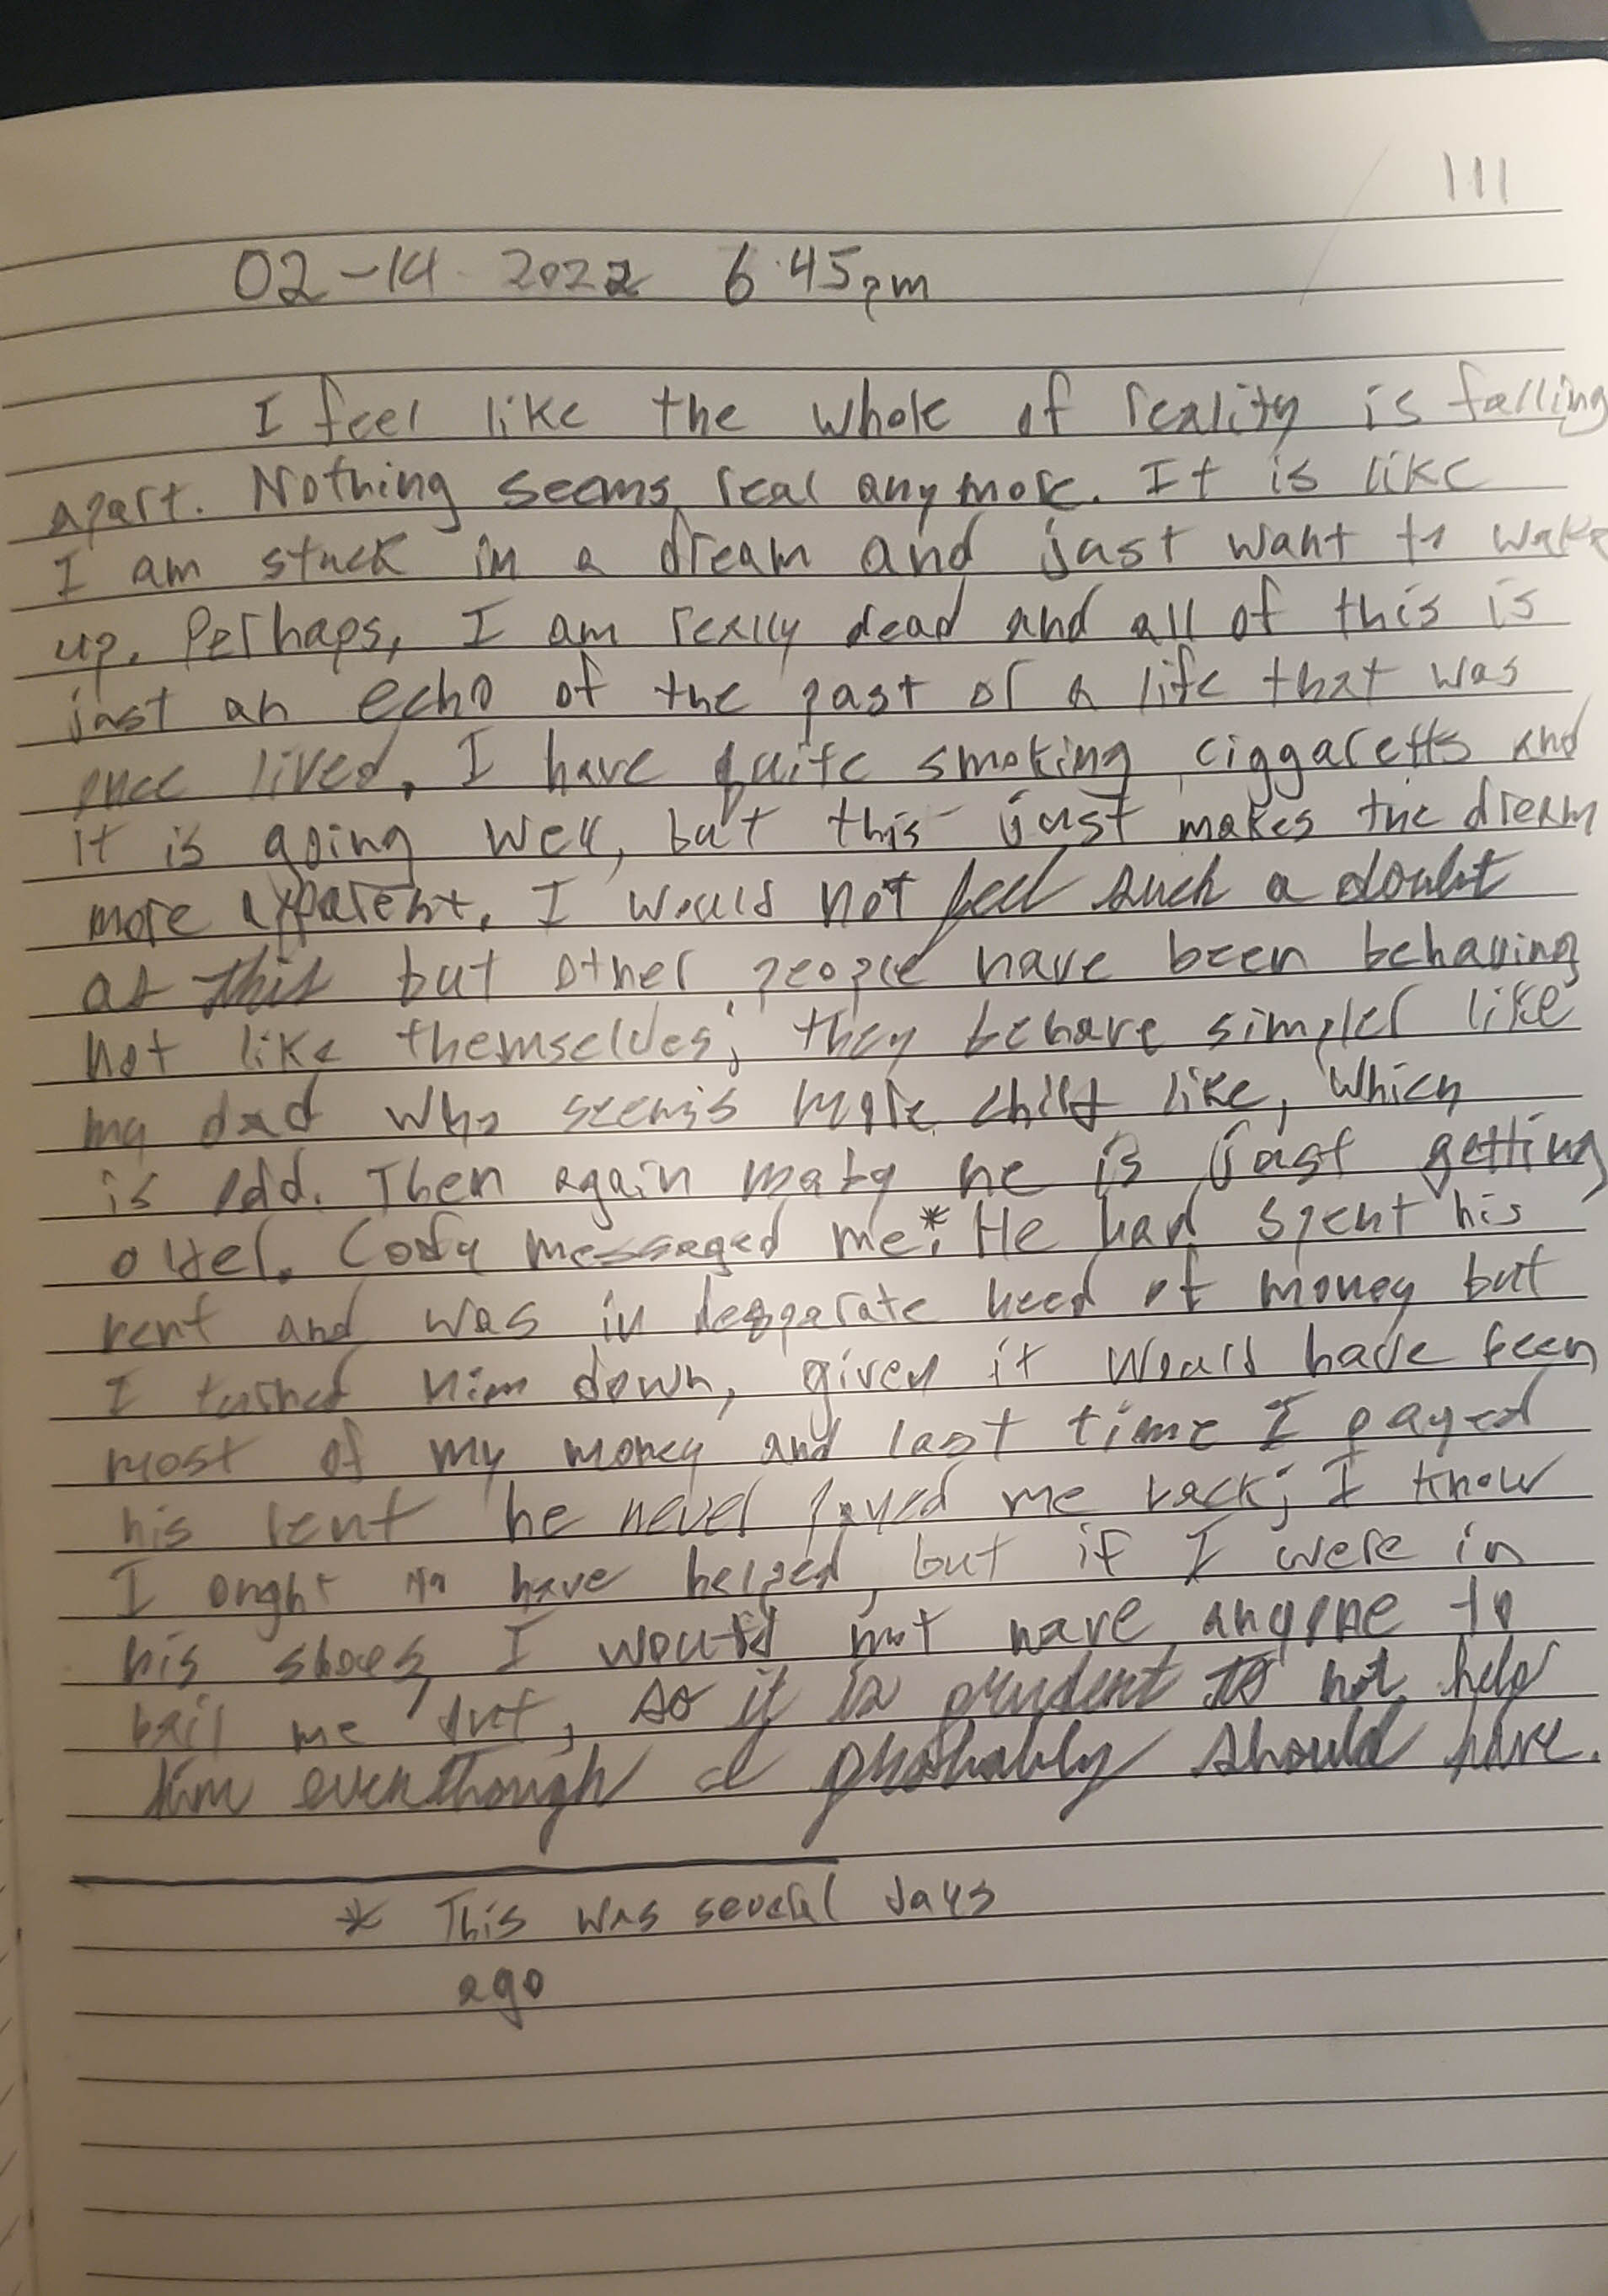 111
02-14-2022 6:45pm
I feel like the whole of reality is falling
apart. Nothing seems real anymore. It is like
I am stuck in a dream and just want to wake
up. Perhaps, I am really dead and all of this is
just an echo of the past or a life that was
once lived. I have quite smoking ciggaretts and
it is going well, but this just makes the dream
more apparent. I would not feel such a doubt
as this but other people have been behaving
not like themselves; they behave simpler like
my dad who seems more child like, which
is odd. Then again maby he is just getting
older. Cody messaged me*. He had spent his
rent and was in desparate need of money but
I turned him down, given it would have been
most of my money and last time I payed
his rent he never payed me back; I know
I ought to have helped, but if I were in
his shoes, I would not have anyone to
bail me out, so it is prudent to not help
him eventhough I probably should have.
* This was several days
ago